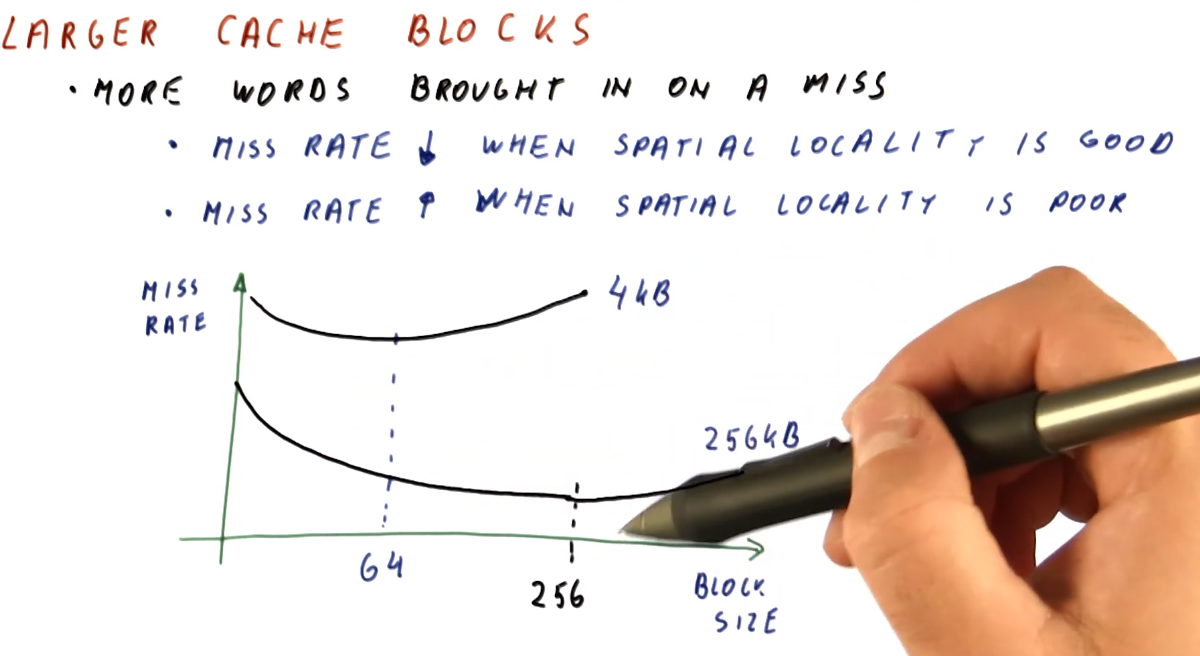 LARGER CACHE BLOCKS
· MORE WORDS BROUGHT IN ON A MISS
· MISS RATE ↓ WHEN SPATIAL LOCALITY IS GOOD
· MISS RATE ↑ WHEN SPATIAL LOCALITY IS POOR
MISS
RATE
4kB
256kB
64
256
BLOCK
SIZE